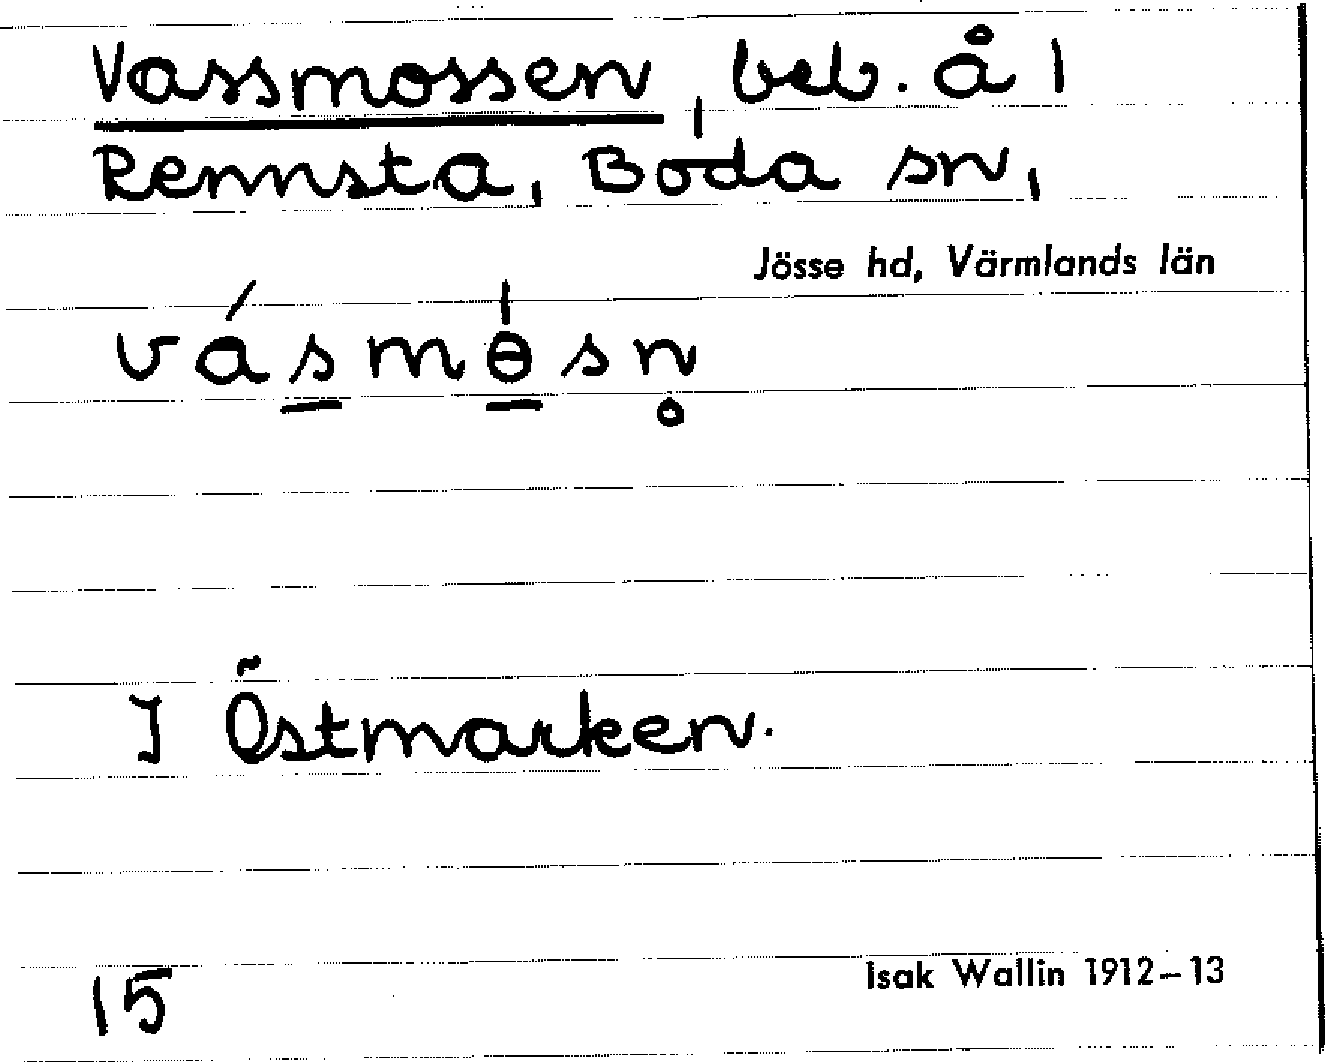 Vassmossen, beb. å 1
Rennsta, Boda sn,
Jösse hd, Värmlands län
vásmɵ̍sn̥
I Östmarken.
15
Isak Wallin 1912–13